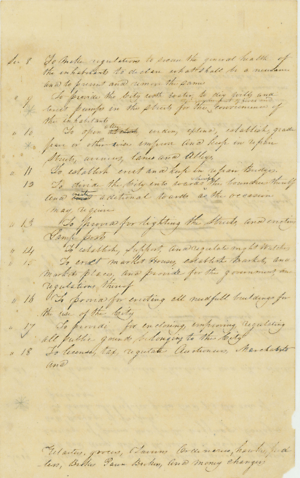 Sec 8 To make regulations to secure the general health of
the inhabitants to declare what shall be a nuisance
and to prevent and remove the same
" 9 To provide the City with water, to dig wells and
erect pumps in the Streets for the convenience of
the inhabitants
" 10 To open alter widen, extend, establish, grade
pave or otherwise improve and keep in repair
Streets, avenues, lanes and Alleys
" 11 To establish erect and keep in repair Bridges
" 12 To divide the City into wards the boundaries thereof
and additional wards as the occasion
may require
" 13 To provide for lighting the Streets and erecting
Lamp posts
" 14 To establish, support, and regulate night Watches
" 15 To erect market houses, establish markets, and
market places, and provide for the government and
regulations thereof
" 16 To provide for erecting all needfull buildings for
the use of the City
" 17 To provide for enclosing improving regulating
all public grounds belonging to the City
" 18 To license, tax, regulate Auctioneers Merchants
and
Retailers, grocers, Taverns, ordinaries, hawkers, ped
lars, Brokers Pawn Brokers, and money changers